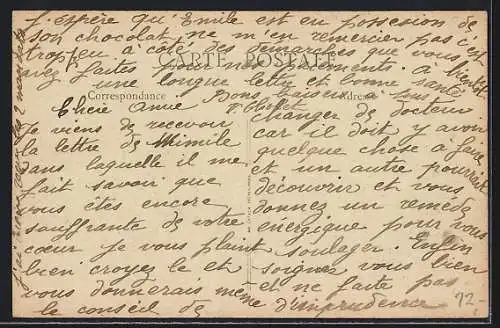 J'espère qu'Emile est en possession de
son chocolat ne m'en remercier pas c'est
trop peu à côté des démarches que vous
avez faites pour nos A bientôt
une longue lettre et bonne santé
Bons baisers à tous
CARTE POSTALE
Correspondance
Adresse
Chère Amie
Je viens de recevoir
la lettre de Mimile
dans laquelle il me
fait savoir que
vous êtes encore
souffrante de votre
cœur je vous plaint
bien croyez le et
vous donnerais même
le conseil de
changer de docteur
car il doit y avoir
quelque chose à faire
et un autre pourrait
découvrir et vous
donner un remède
énergique pour vous
soulager. Enfin
soignez vous bien
et ne faite pas
d'imprudence
12-